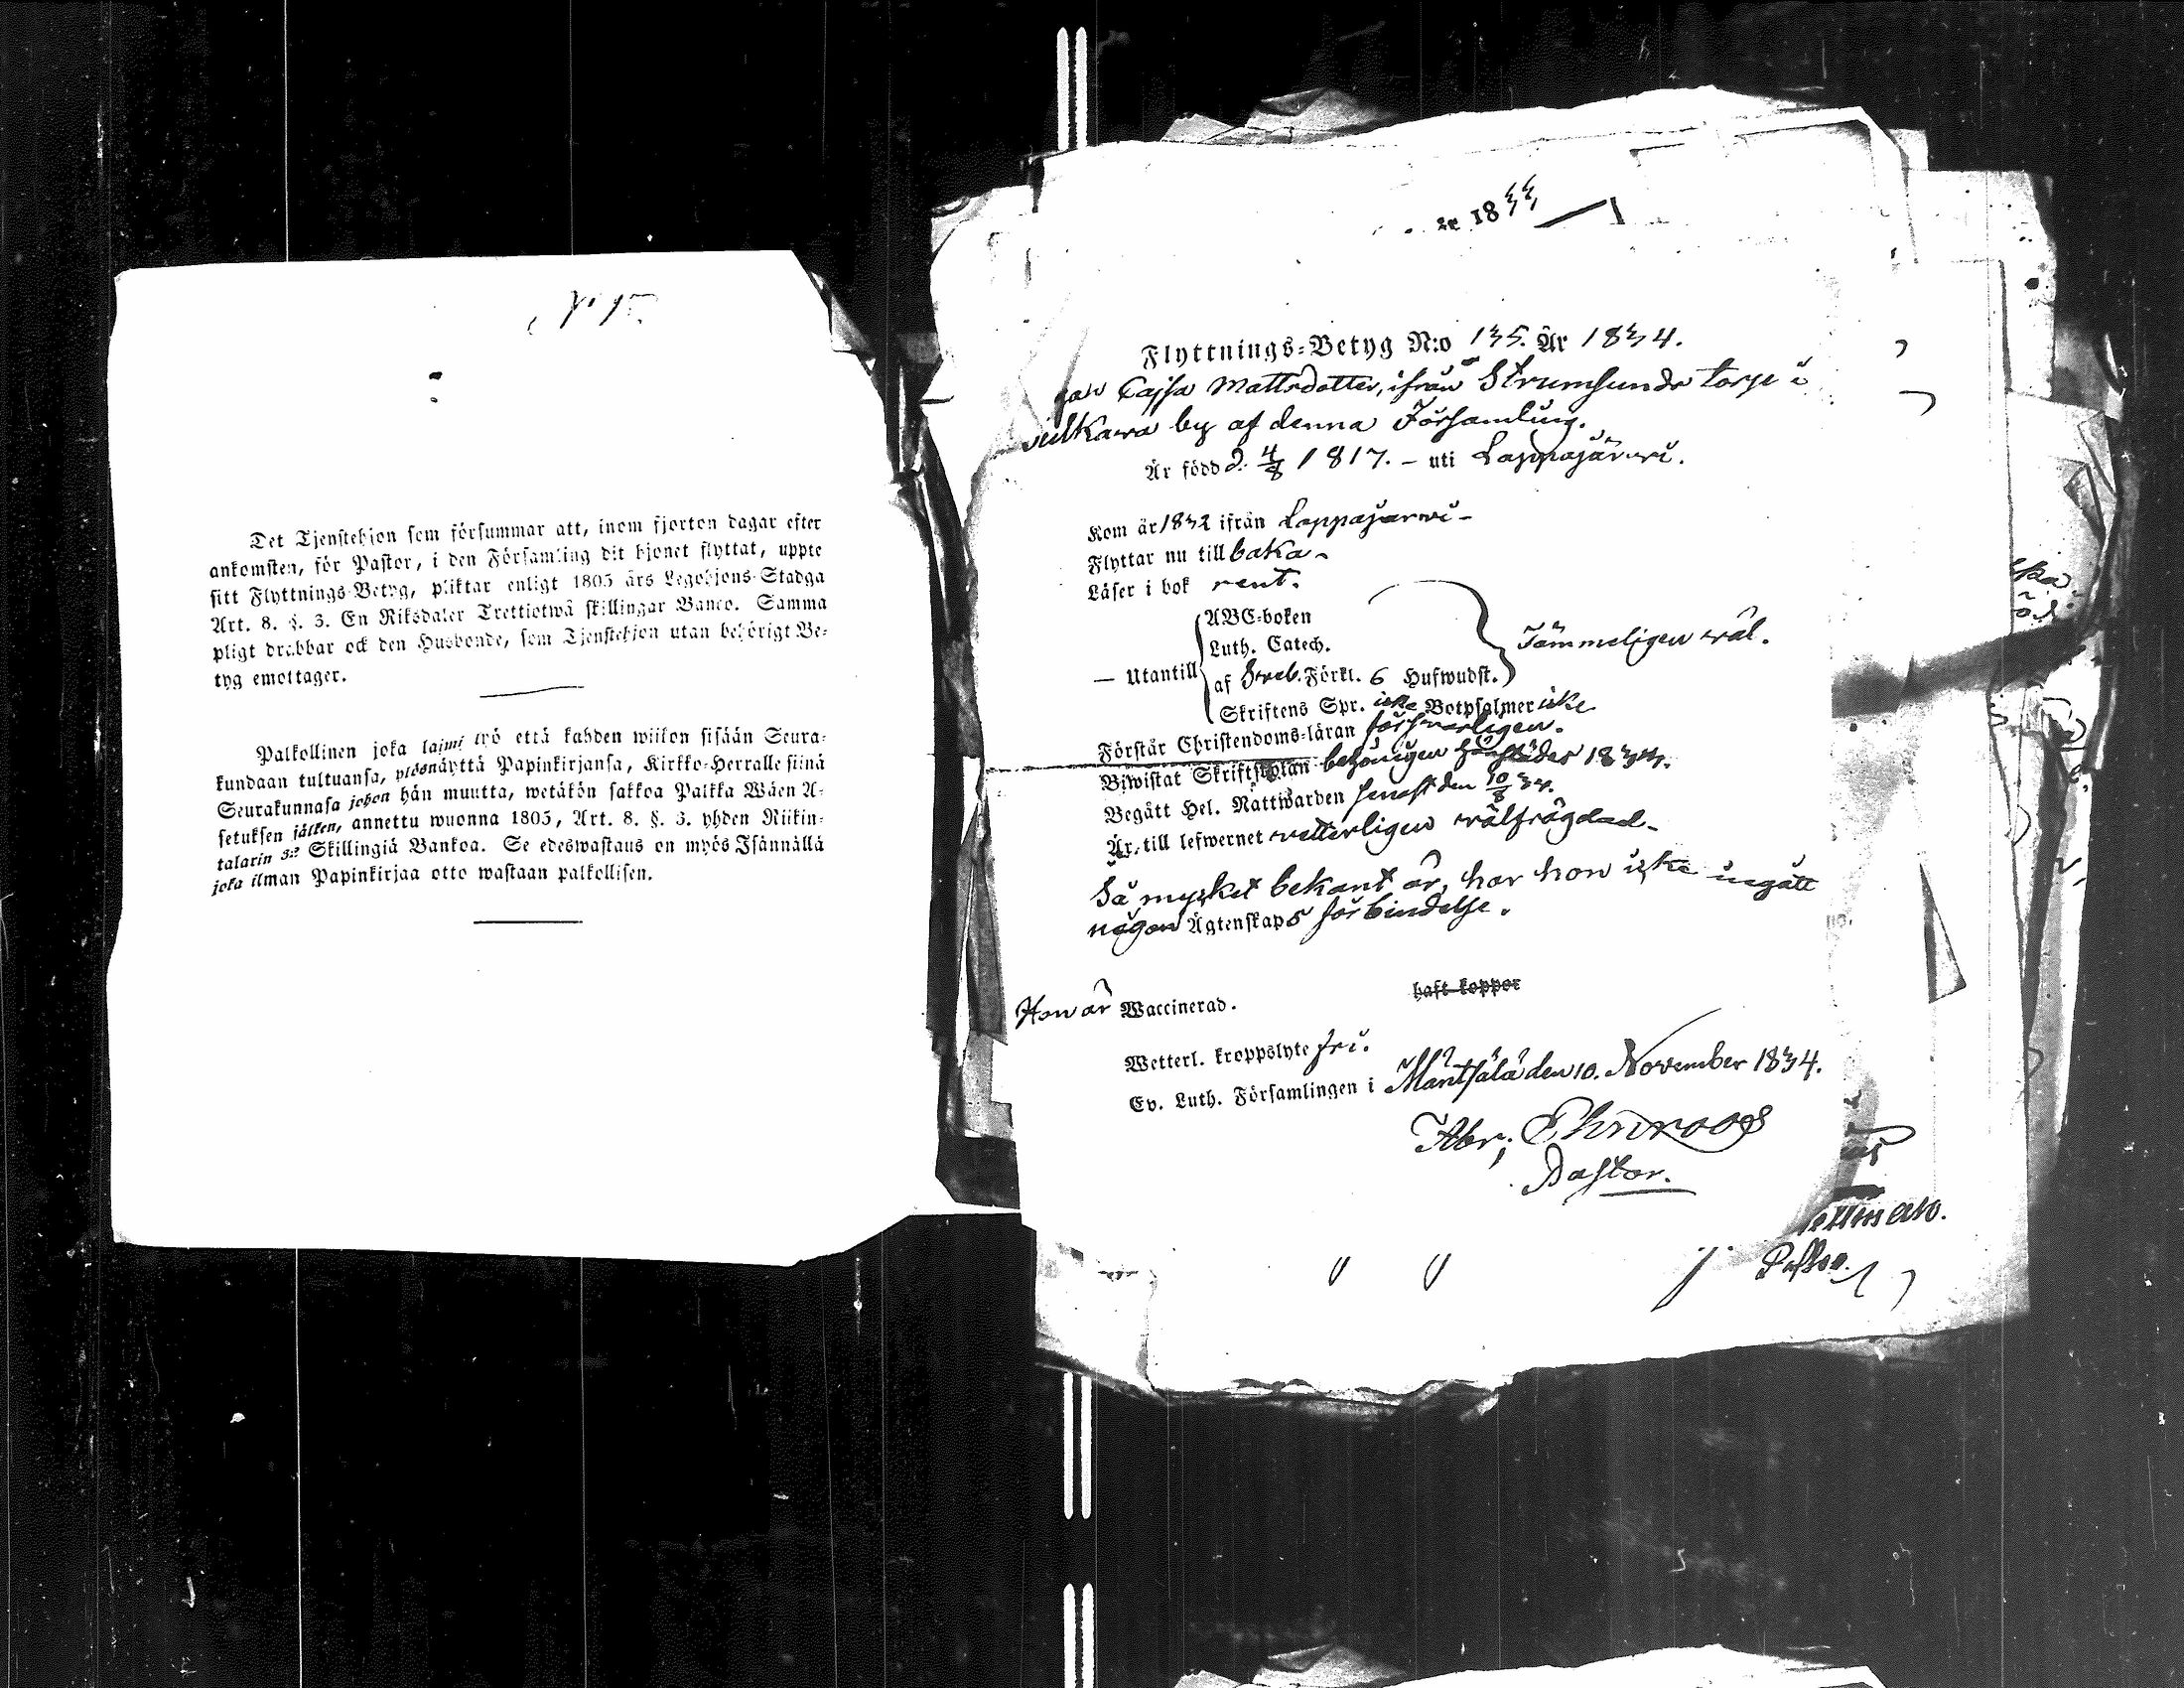 Det Tjenstehjon som försummar att, inom fjorton dagar efter
ankomsten, för Pastor, i den Församling dit hjonet flyttat, uppte
sitt Flyttnings-Betyg, pliktar enligt 1805 års Legohjons-Stadga
Art. 8. §. 3. En Riksdaler Trettiotwå skillingar Banco. Samma
pligt drabbar ock den Husbonde, som Tjenstehjon utan behörigt Be-
tyg emottager.
Palkollinen joka laimi lyö että kahden wiikon sisään Seura-
kundaan tultuansa, ylösnäyttä Papinkirjansa, Kirkko-Herralle siinä
Seurakunnasa johon hän muutta, wetäkön sakkoa Palkka Wäen A-
setuksen jälken, annettu wuonna 1805, Art. 8. §. 3. yhden Riikin-
talarin 32 Skillingiä Bankoa. Se edeswastaus on myös Isännällä
joka ilman Papinkirjaa otto wastaan palkollisen.
år 1833
Flyttnings-Betyg N:o 135. År 1834.
Cajsa Mattsdotter, ifrån Strömsunds torp i
by af denna Församling.
Är född d. 4/8 1817. – uti Lappajärwi.
Kom år 1832 ifrån Lappajärwi –
Flyttar nu till baka –
Läser i bok rent.
— Utantill
ABC-boken
Luth. Catech.
af Sweb. Förkl. 6 Hufwudst.
Tämmeligen wäl.
Skriftens Spr. icke Botpsalmer icke
Förstår Christendoms-läran försvarligen.
Biwistat Skriftskolan behörigen härstädes 1834.
Begått Hel. Nattwarden senast den 10/8 34.
Är till lefwernet vetterligen wälfrägdad –
Så mycket bekant är, har hon icke ingått
någon Ägtenskaps förbindelse.
Hon är Waccinerad.
haft koppor
Wetterl. kroppslyte fri.
Ev. Luth. Församlingen i Mäntsälä den 10. November 1834.
Abr; Ehnroos
Pastor.
Pastor.